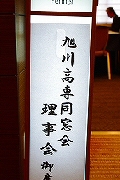 旭川高専同窓会
理事会御席